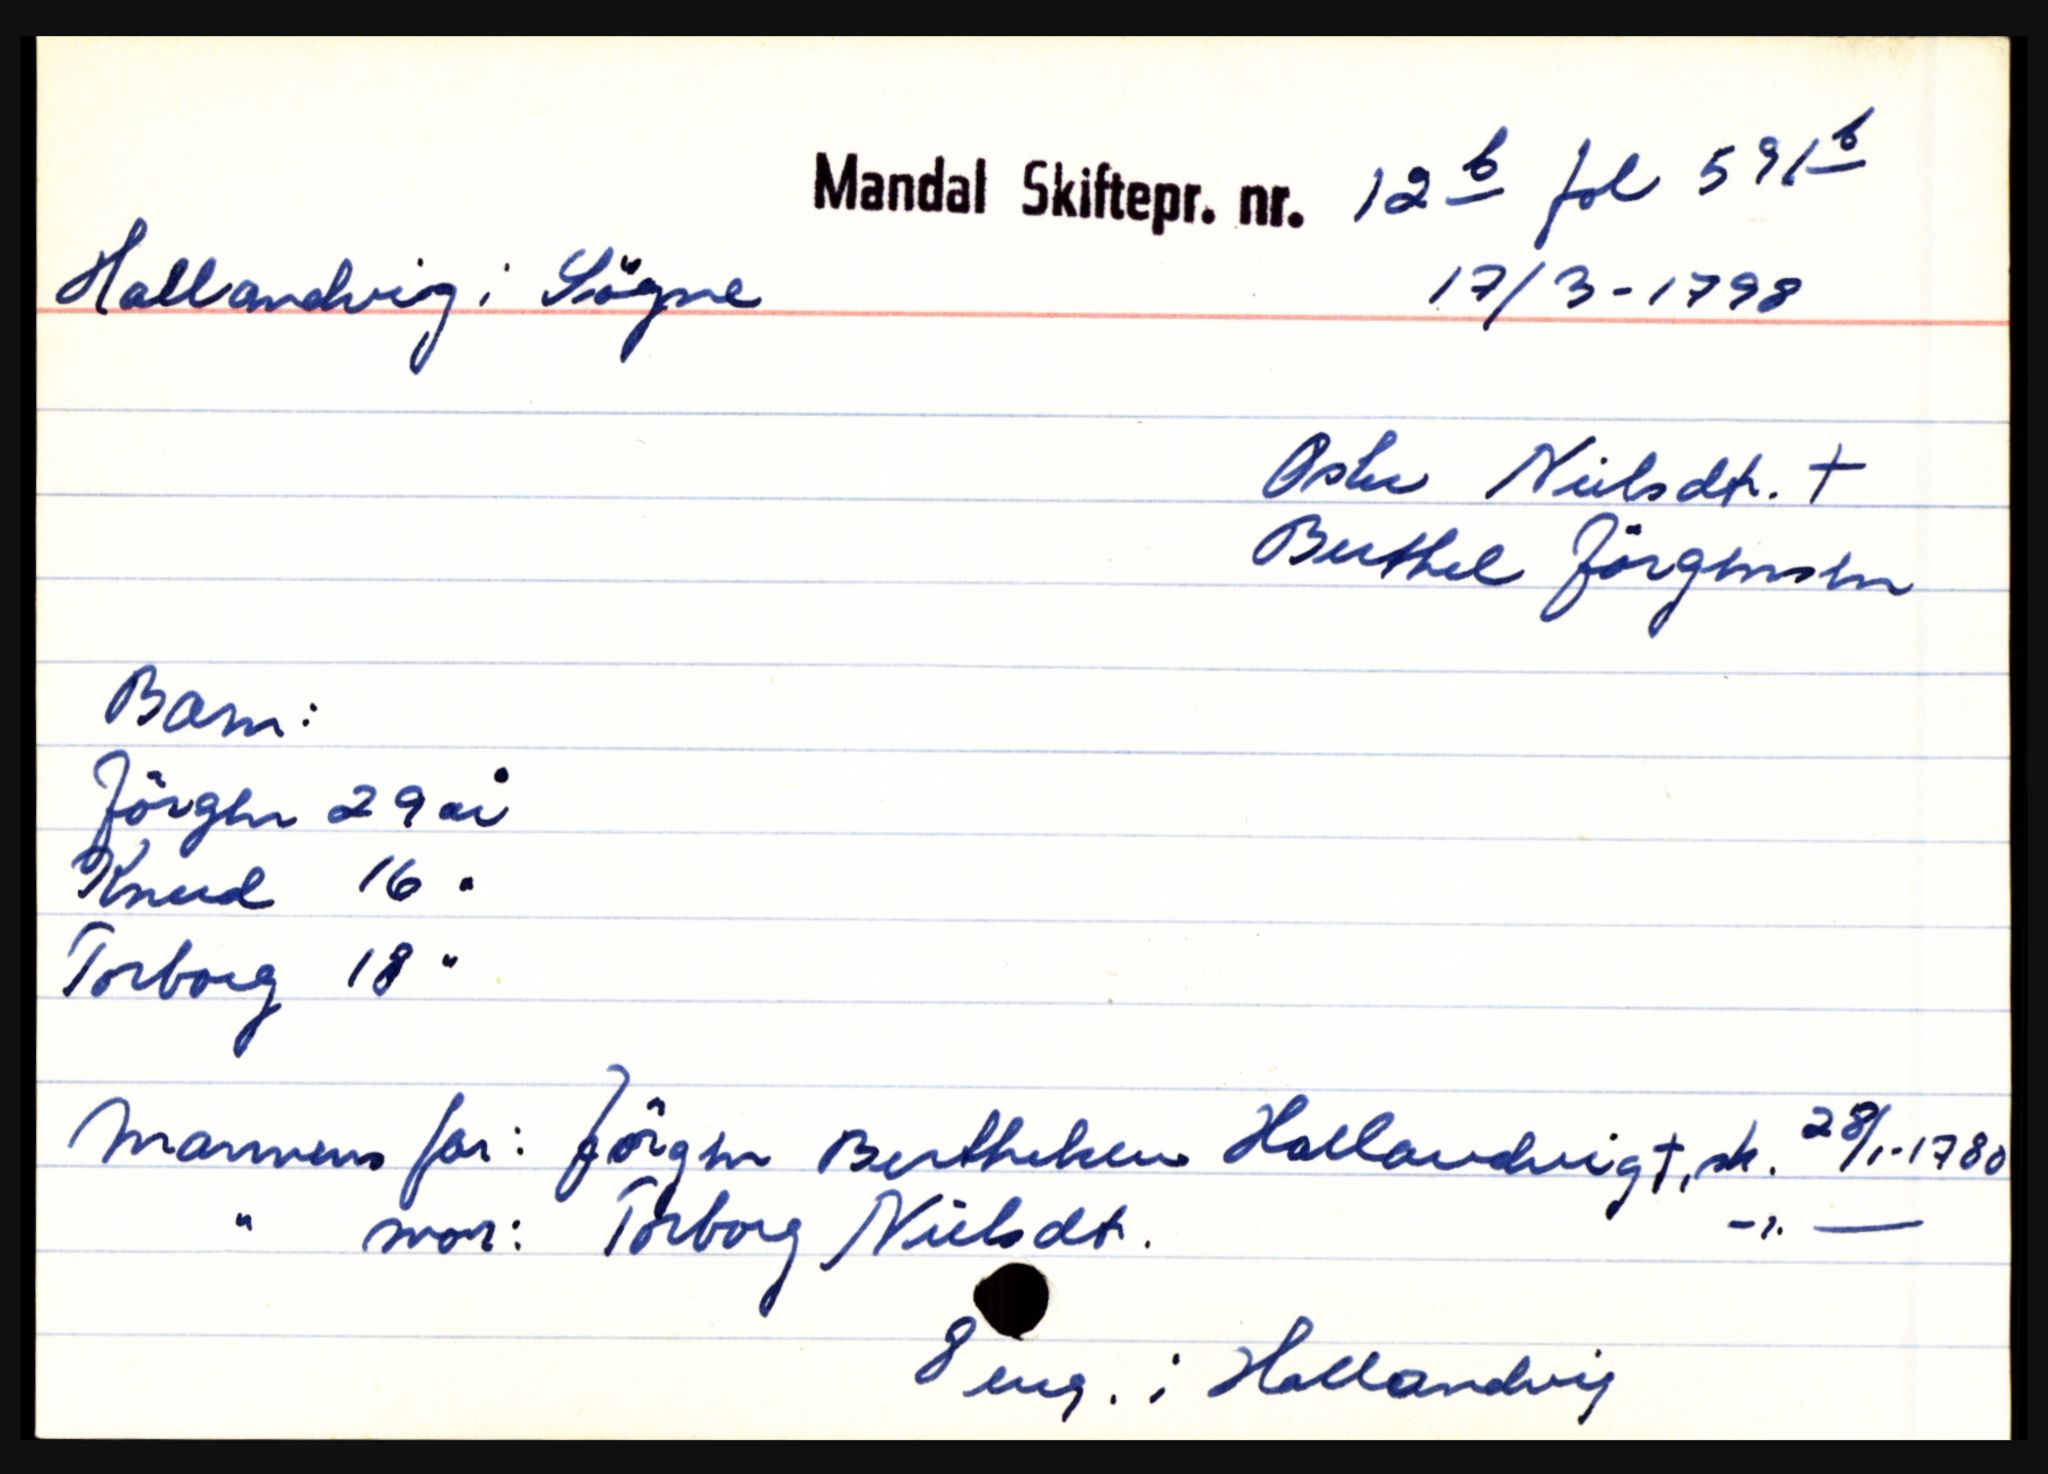 Mandal Skiftepr. nr. 12 b fol 591 b
Hallandvig i Sögne 17/3-1798
Nielsdt. †
Berthel Jörgensen
Barn:
Jörgen 29 år
Knud 16 "
Torborg 18 "
Mannens far: Jörgen Berthelsen Hallandvig †, sk. 28/1-1780
" mor: Torborg Nielsdt. -"- —
8 eng. i Hallandvig